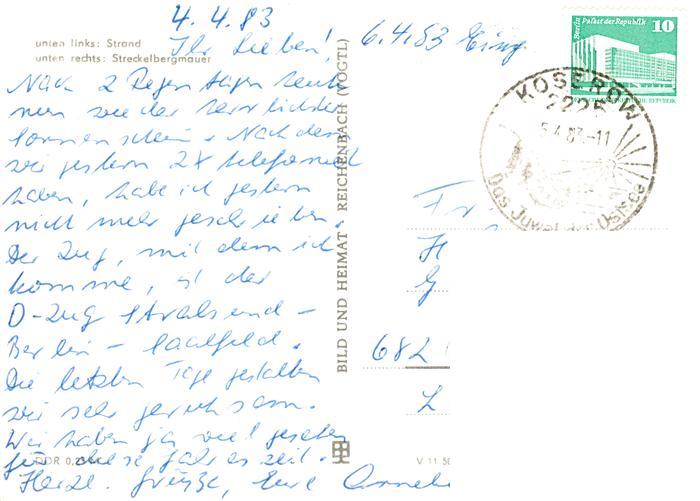 4.4.83
unten links: Strand
unten rechts: Streckelbergmauer
Ihr Lieben!
6.4.83 Eing.
Nach 2 Regentagen heute
nun wieder herrlichster
Sonnenschein. Nachdem
wir gestern 2x telefoniert
haben, habe ich gestern
nicht mehr geschrieben.
Der Zug, mit dem ich
komme, ist der
D-Zug Stralsund –
Berlin – Saalfeld.
Die letzten Tage gestalten
wir sehr geruhsam.
Wir haben ja viel gesehen
für diese Jahreszeit.
Herzl. Grüße, Eure Annel
DDR 0,2
BILD UND HEIMAT REICHENBACH (VOGTL)
V 11 50
Berlin Palast der Republik
10
DEUTSCHE DEMOKRATISCHE REPUBLIK
KOSEROW
2225
5.4.83-11
Das Juwel der Ostsee
Fr
H
G
682
L